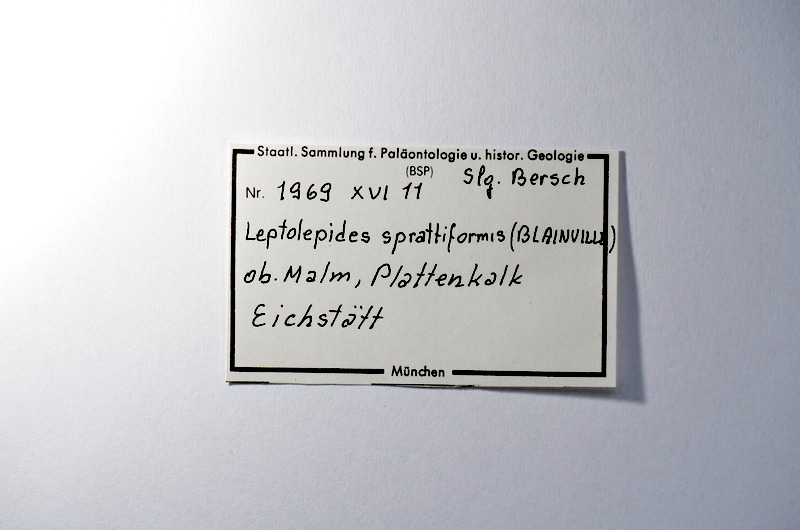 Staatl. Sammlung f. Paläontologie u. histor. Geologie
(BSP) Slg. Bersch
Nr. 1969 XVI 11
Leptolepides sprattiformis (BLAINVILLE)
ob. Malm, Plattenkalk
Eichstätt
München